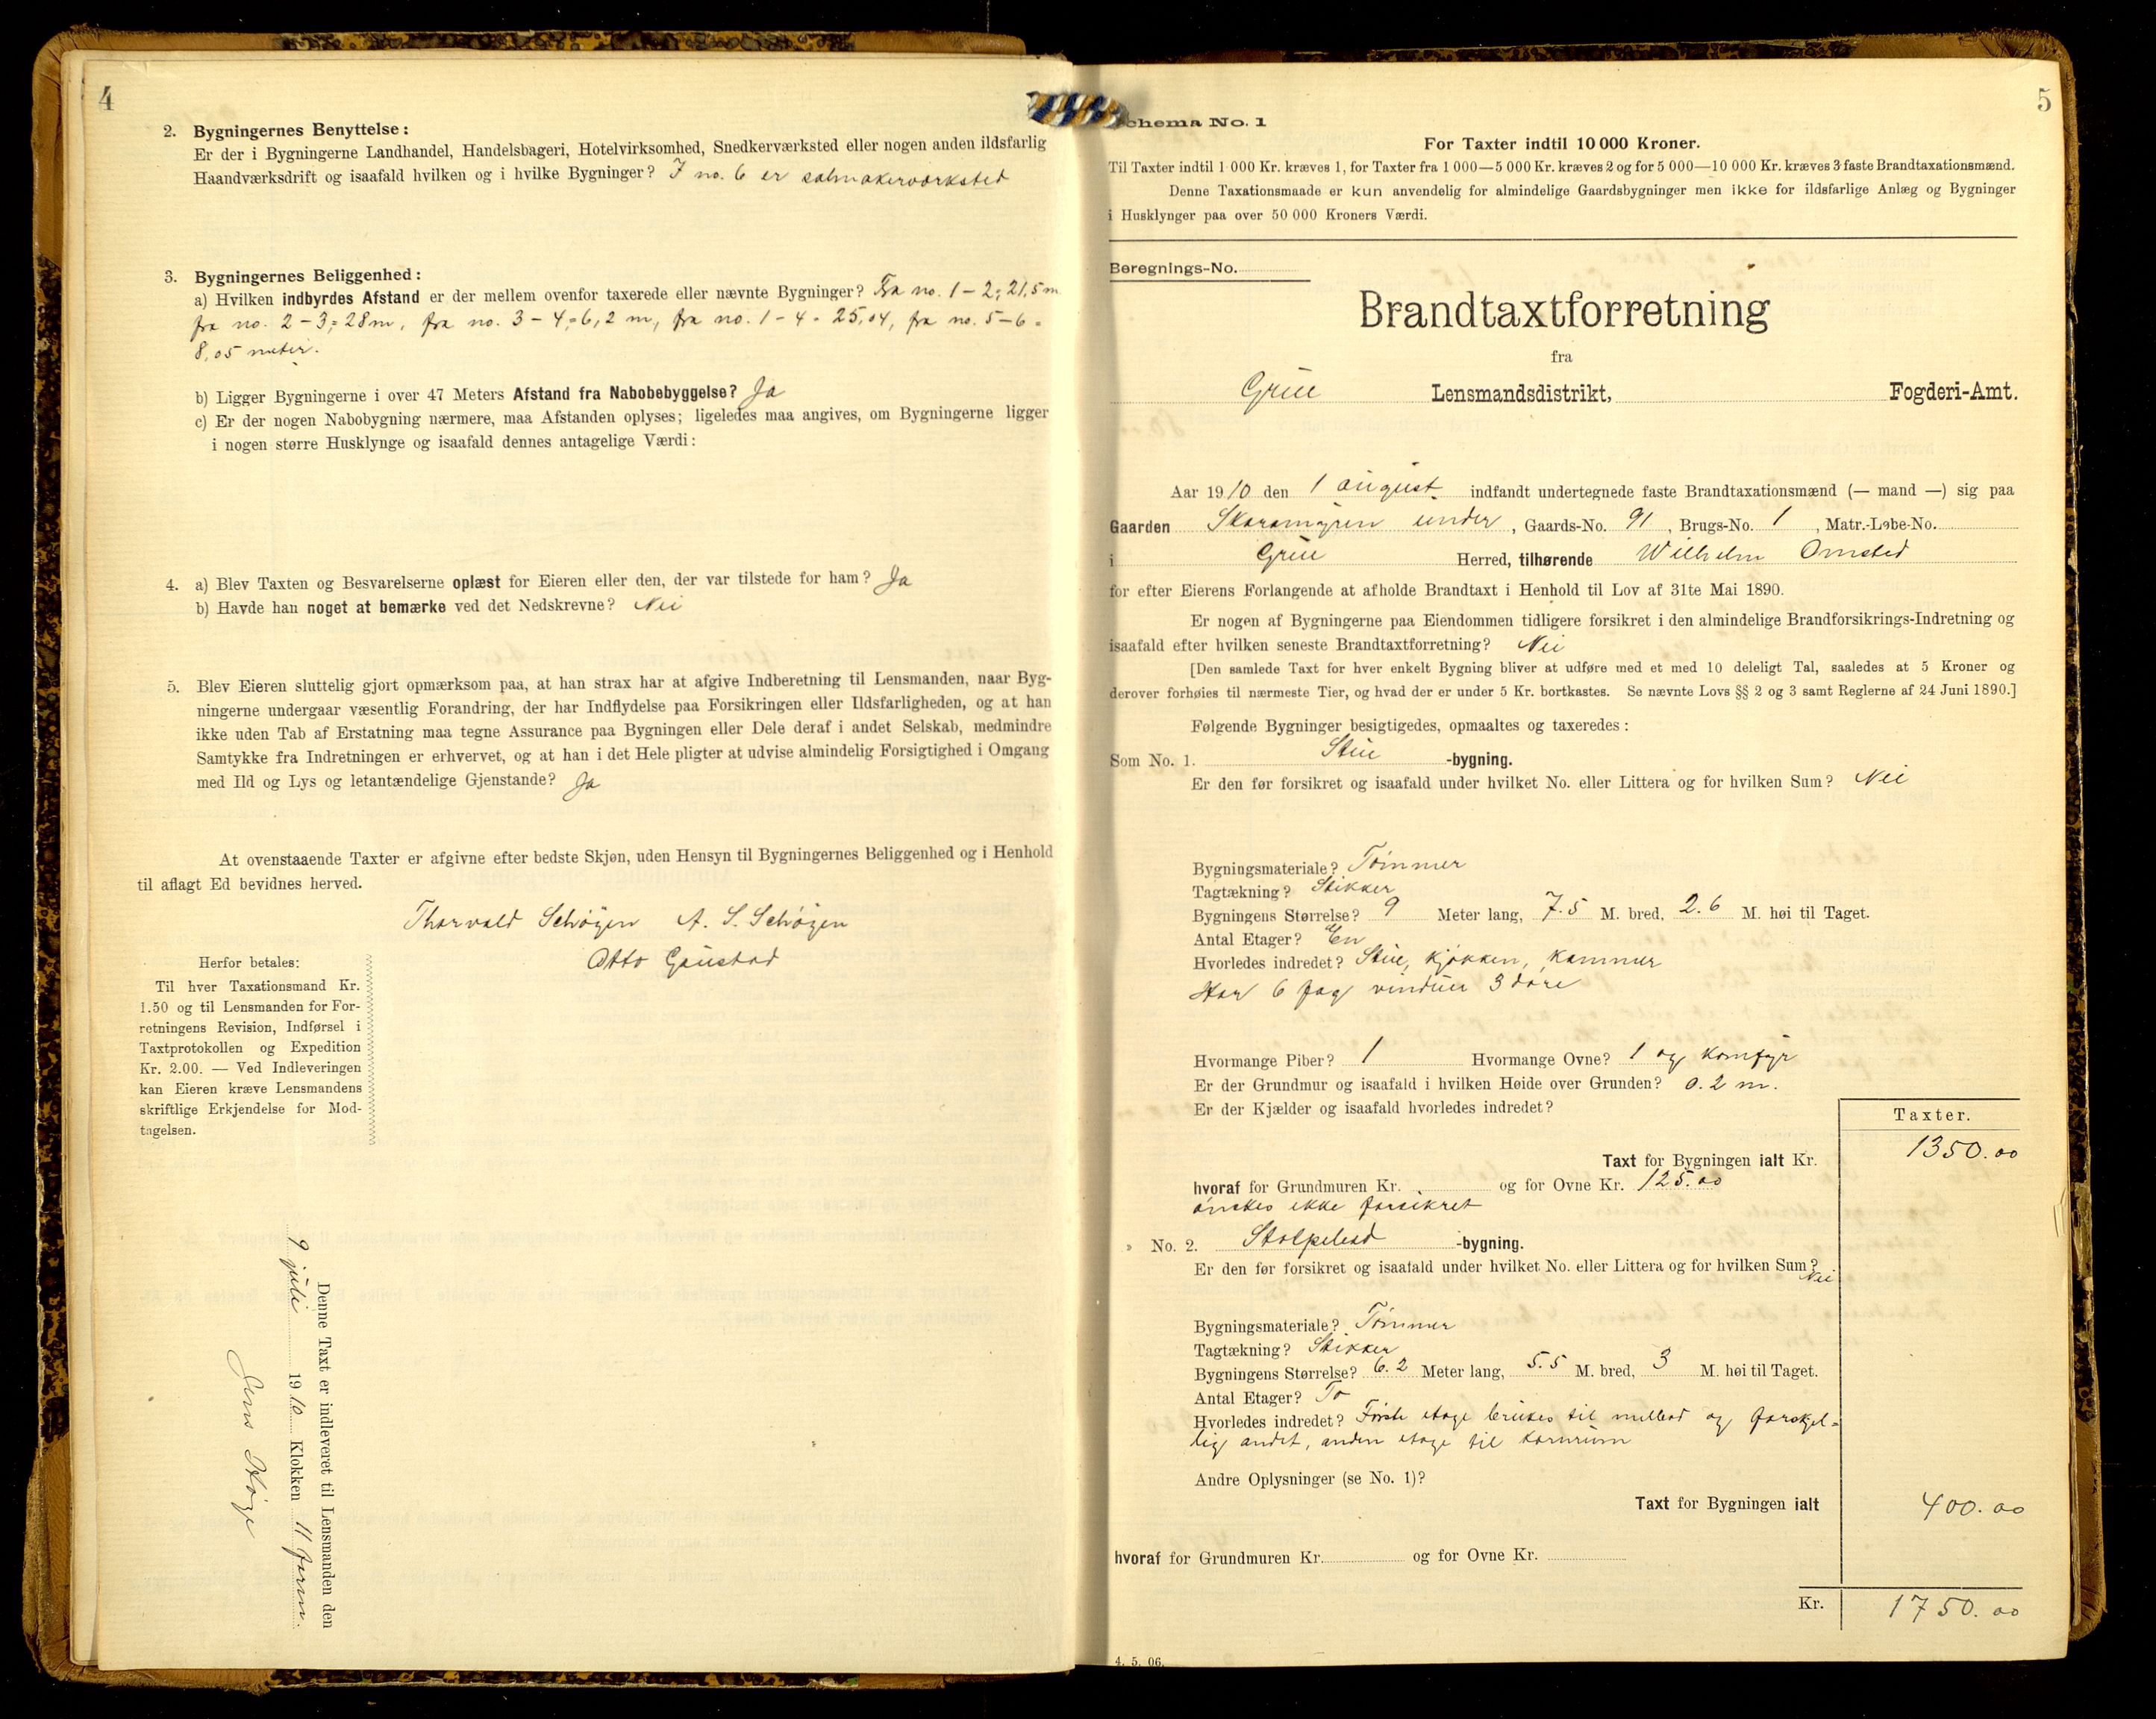 4
2. Bygningernes Benyttelse:
Er der i Bygningerne Landhandel, Handelsbageri, Hotelvirksomhed, Snedkerværksted eller nogen anden ildsfarlig
Haandværksdrift og isaafald hvilken og i hvilke Bygninger? I no. 6 er salmakerværksted
3. Bygningernes Beliggenhed:
a) Hvilken indbyrdes Afstand er der mellem ovenfor taxerede eller nævnte Bygninger? Fra no. 1 – 2 = 21,5 m
fra no. 2 – 3 = 28 m, fra no. 3 – 4 = 6,2 m, fra no. 1 – 4 = 25,04, fra no. 5 – 6 =
8,05 meter.
b) Ligger Bygningerne i over 47 Meters Afstand fra Nabobebyggelse? Ja
c) Er der nogen Nabobygning nærmere, maa Afstanden oplyses; ligeledes maa angives, om Bygningerne ligger
i nogen større Husklynge og isaafald dennes antagelige Værdi:
4. a) Blev Taxten og Besvarelserne oplæst for Eieren eller den, der var tilstede for ham? Ja
b) Havde han noget at bemærke ved det Nedskrevne? Nei
5. Blev Eieren sluttelig gjort opmærksom paa, at han strax har at afgive Indberetning til Lensmanden, naar Byg-
ningerne undergaar væsentlig Forandring, der har Indflydelse paa Forsikringen eller Ildsfarligheden, og at han
ikke uden Tab af Erstatning maa tegne Assurance paa Bygningen eller Dele deraf i andet Selskab, medmindre
Samtykke fra Indretningen er erhvervet, og at han i det Hele pligter at udvise almindelig Forsigtighed i Omgang
med Ild og Lys og letantændelige Gjenstande? Ja
At ovenstaaende Taxter er afgivne efter bedste Skjøn, uden Hensyn til Bygningernes Beliggenhed og i Henhold
til aflagt Ed bevidnes herved.
Thorvald Schøyen A. S. Schøyen
Otto Gaustad
Herfor betales:
Til hver Taxationsmand Kr.
1.50 og til Lensmanden for For-
retningens Revision, Indførsel i
Taxtprotokollen og Expedition
Kr. 2.00. — Ved Indleveringen
kan Eieren kræve Lensmandens
skriftlige Erkjendelse for Mod-
tagelsen.
Denne Taxt er indleveret til Lensmanden den
9 juli 1910 Klokken 11 form.
Jens
5
Schema No. 1
For Taxter indtil 10 000 Kroner.
Til Taxter indtil 1 000 Kr. kræves 1, for Taxter fra 1 000—5 000 Kr. kræves 2 og for 5 000—10 000 Kr. kræves 3 faste Brandtaxationsmænd.
Denne Taxationsmaade er kun anvendelig for almindelige Gaardsbygninger men ikke for ildsfarlige Anlæg og Bygninger
i Husklynger paa over 50 000 Kroners Værdi.
Beregnings-No.
Brandtaxtforretning
fra
Grue Lensmandsdistrikt, Fogderi-Amt.
Aar 1910 den 1 august indfandt undertegnede faste Brandtaxationsmænd (— mand —) sig paa
Gaarden Skaramyren under, Gaards-No. 91, Brugs-No. 1, Matr.-Løbe-No.
i Grue Herred, tilhørende Wilhelm Omsted
for efter Eierens Forlangende at afholde Brandtaxt i Henhold til Lov af 31te Mai 1890.
Er nogen af Bygningerne paa Eiendommen tidligere forsikret i den almindelige Brandforsikrings-Indretning og
isaafald efter hvilken seneste Brandtaxtforretning? Nei
[Den samlede Taxt for hver enkelt Bygning bliver at udføre med et med 10 deleligt Tal, saaledes at 5 Kroner og
derover forhøies til nærmeste Tier, og hvad der er under 5 Kr. bortkastes. Se nævnte Lovs §§ 2 og 3 samt Reglerne af 24 Juni 1890.]
Følgende Bygninger besigtigedes, opmaaltes og taxeredes:
Som No. 1. Stue -bygning.
Er den før forsikret og isaafald under hvilket No. eller Littera og for hvilken Sum? Nei
Bygningsmateriale? Tømmer
Tagtækning? Stikker
Bygningens Størrelse? 9 Meter lang, 7.5 M. bred, 2.6 M. høi til Taget.
Antal Etager? En
Hvorledes indredet? Stue, kjøkken, kammer
Har 6 fag vinduer 3 døre
Hvormange Piber? 1 Hvormange Ovne? 1 og komfyr
Er der Grundmur og isaafald i hvilken Høide over Grunden? 0.2 m.
Er der Kjælder og isaafald hvorledes indredet?
Taxter.
Taxt for Bygningen ialt Kr. 1350.00
hvoraf for Grundmuren Kr. og for Ovne Kr. 125.00
ønskes ikke forsikret
" No. 2. Stolpebod -bygning.
Er den før forsikret og isaafald under hvilket No. eller Littera og for hvilken Sum? Nei
Bygningsmateriale? Tømmer
Tagtækning? Stikker
Bygningens Størrelse? 6.2 Meter lang, 5.5 M. bred, 3 M. høi til Taget.
Antal Etager? To
Hvorledes indredet? Første etage brukes til melbod og forskjel-
lig andet, anden etage til kornrum
Andre Oplysninger (se No. 1)?
Taxt for Bygningen ialt 400.00
hvoraf for Grundmuren Kr. og for Ovne Kr.
Kr. 1750.00
4. 5. 06.